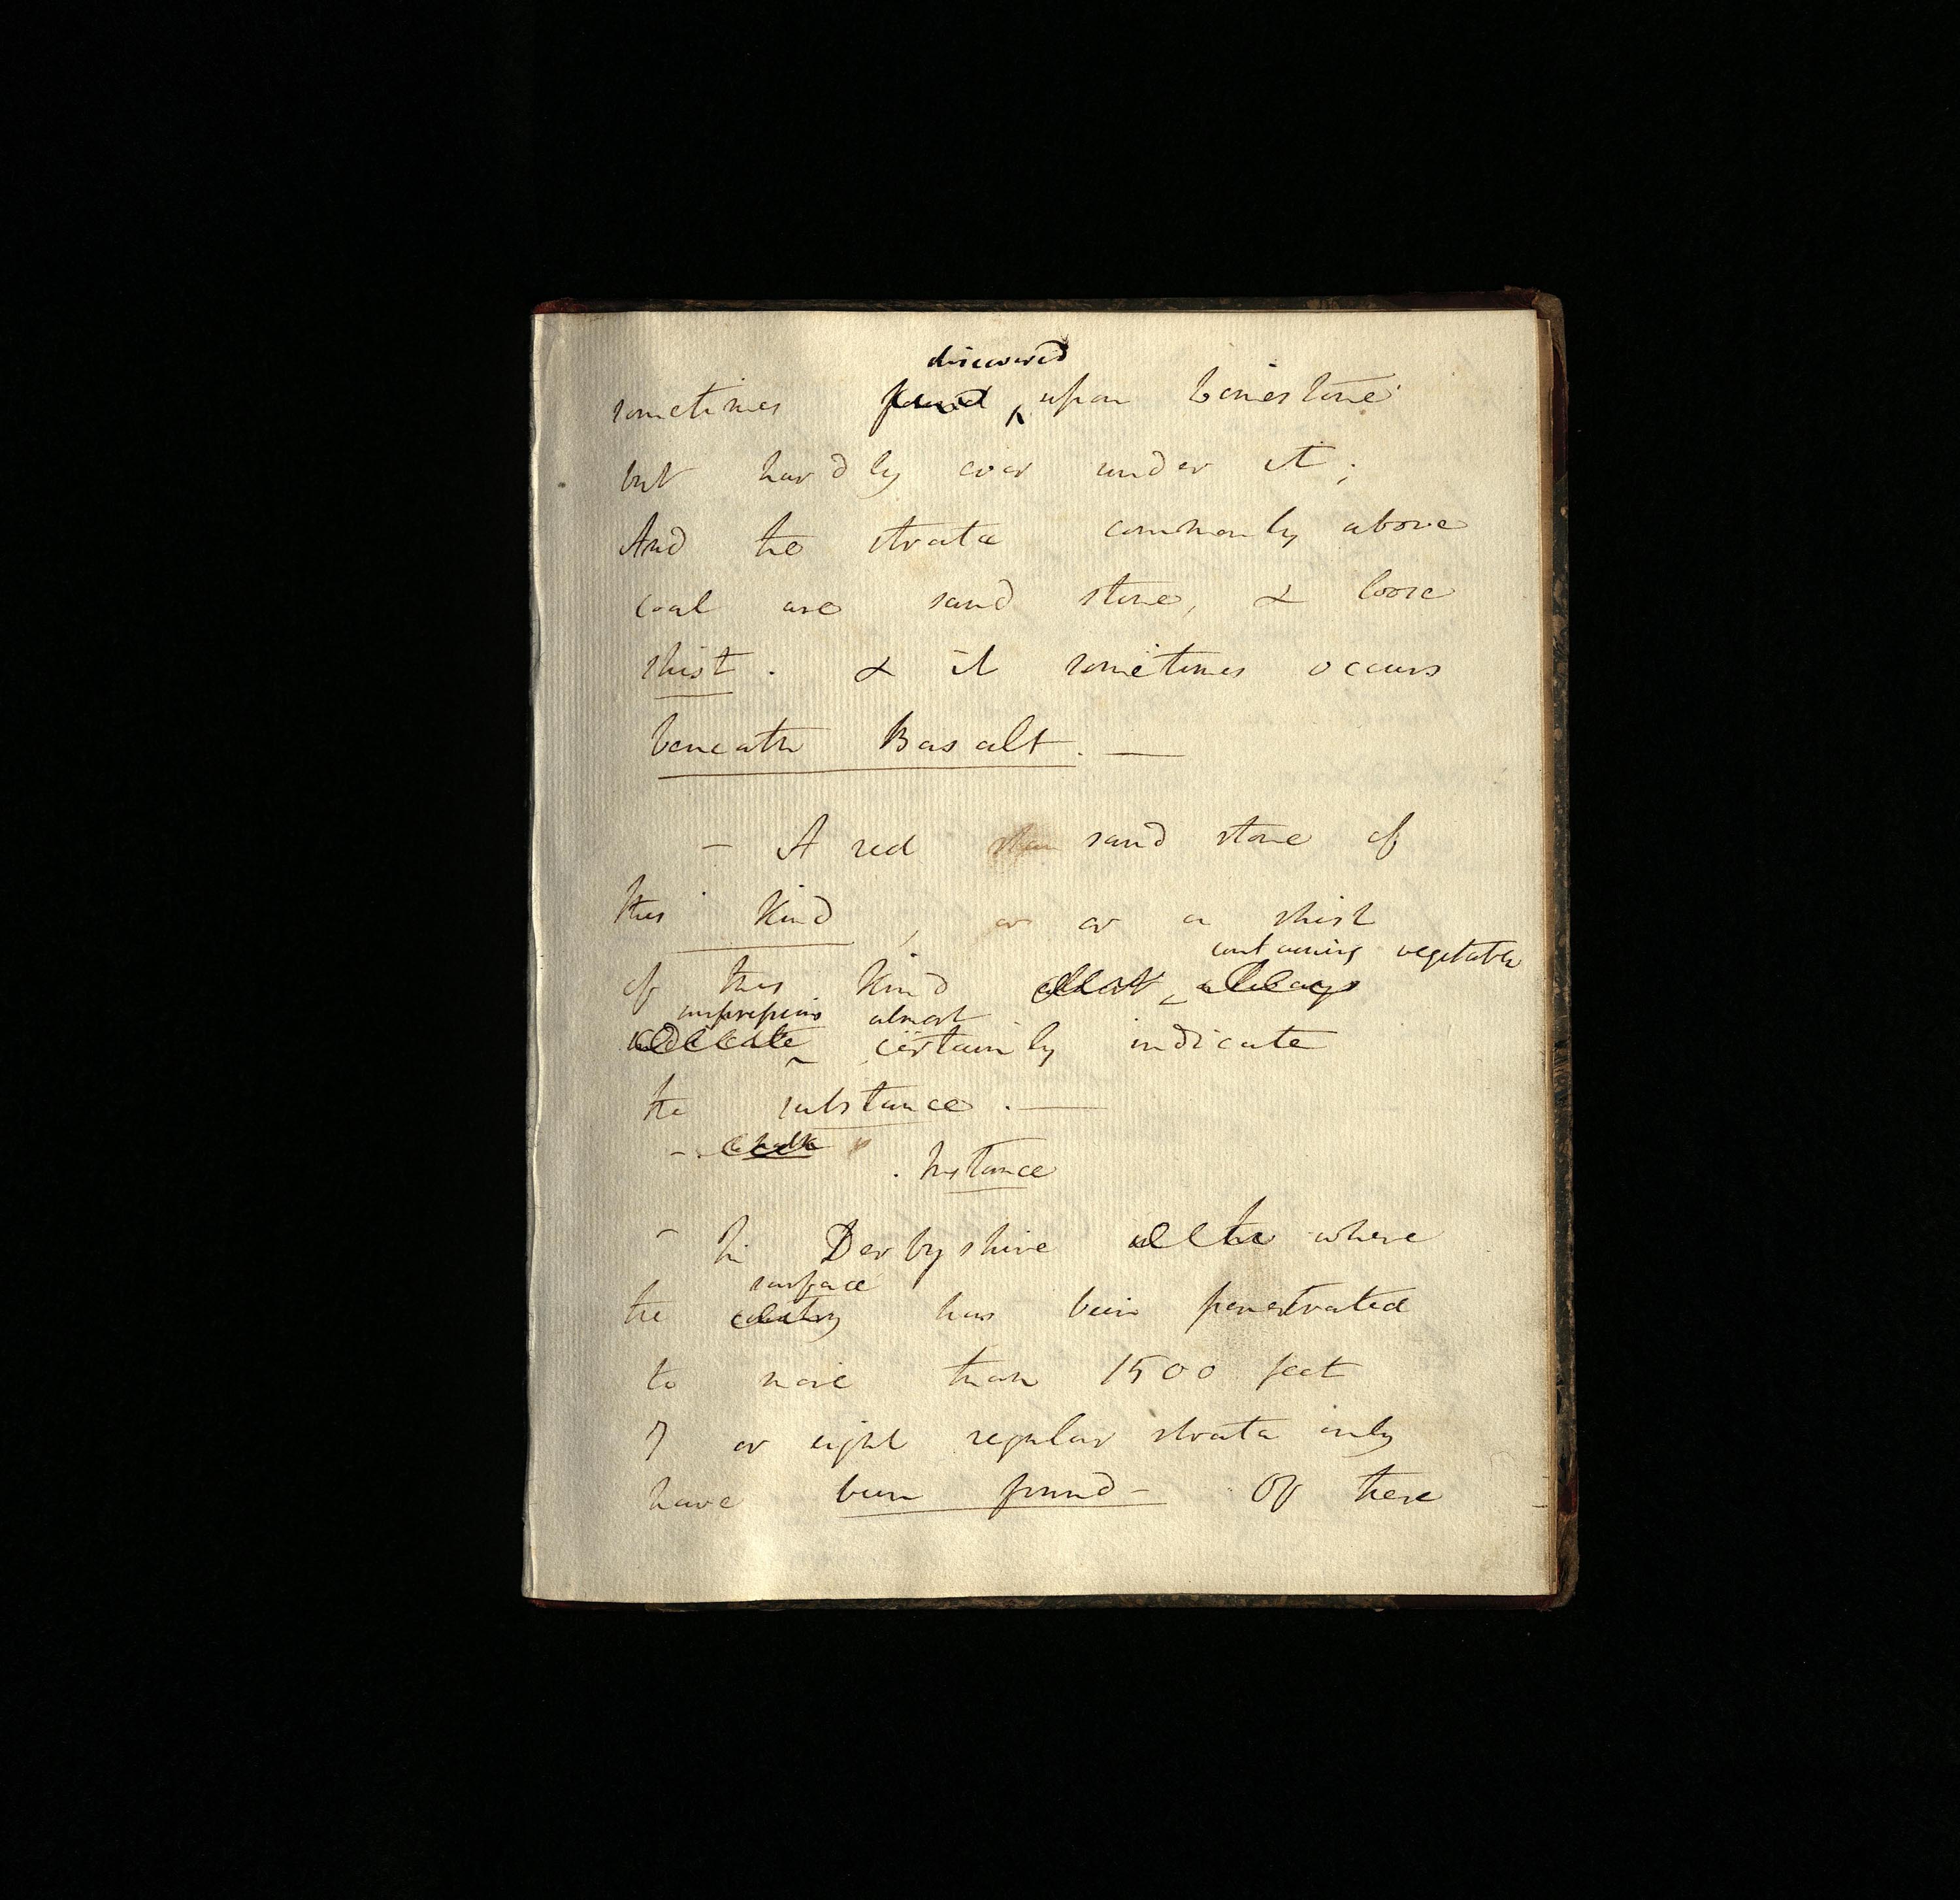 discovered
sometimes found upon Limestone
but hardly ever under it;
And the strata commonly above
coal are sand stone, & loose
shist. & it sometimes occurs
beneath Basalt. —
— A red sand stone of
this kind, or or a shist
containing vegetable
of this kind almost always
impressions almost
indicate certainly indicate
the substance. —
— chalk
. Instance
— In Derbyshire where
surface
the country has been penetrated
to more than 1500 feet
7 or eight regular strata only
have been found — Of these